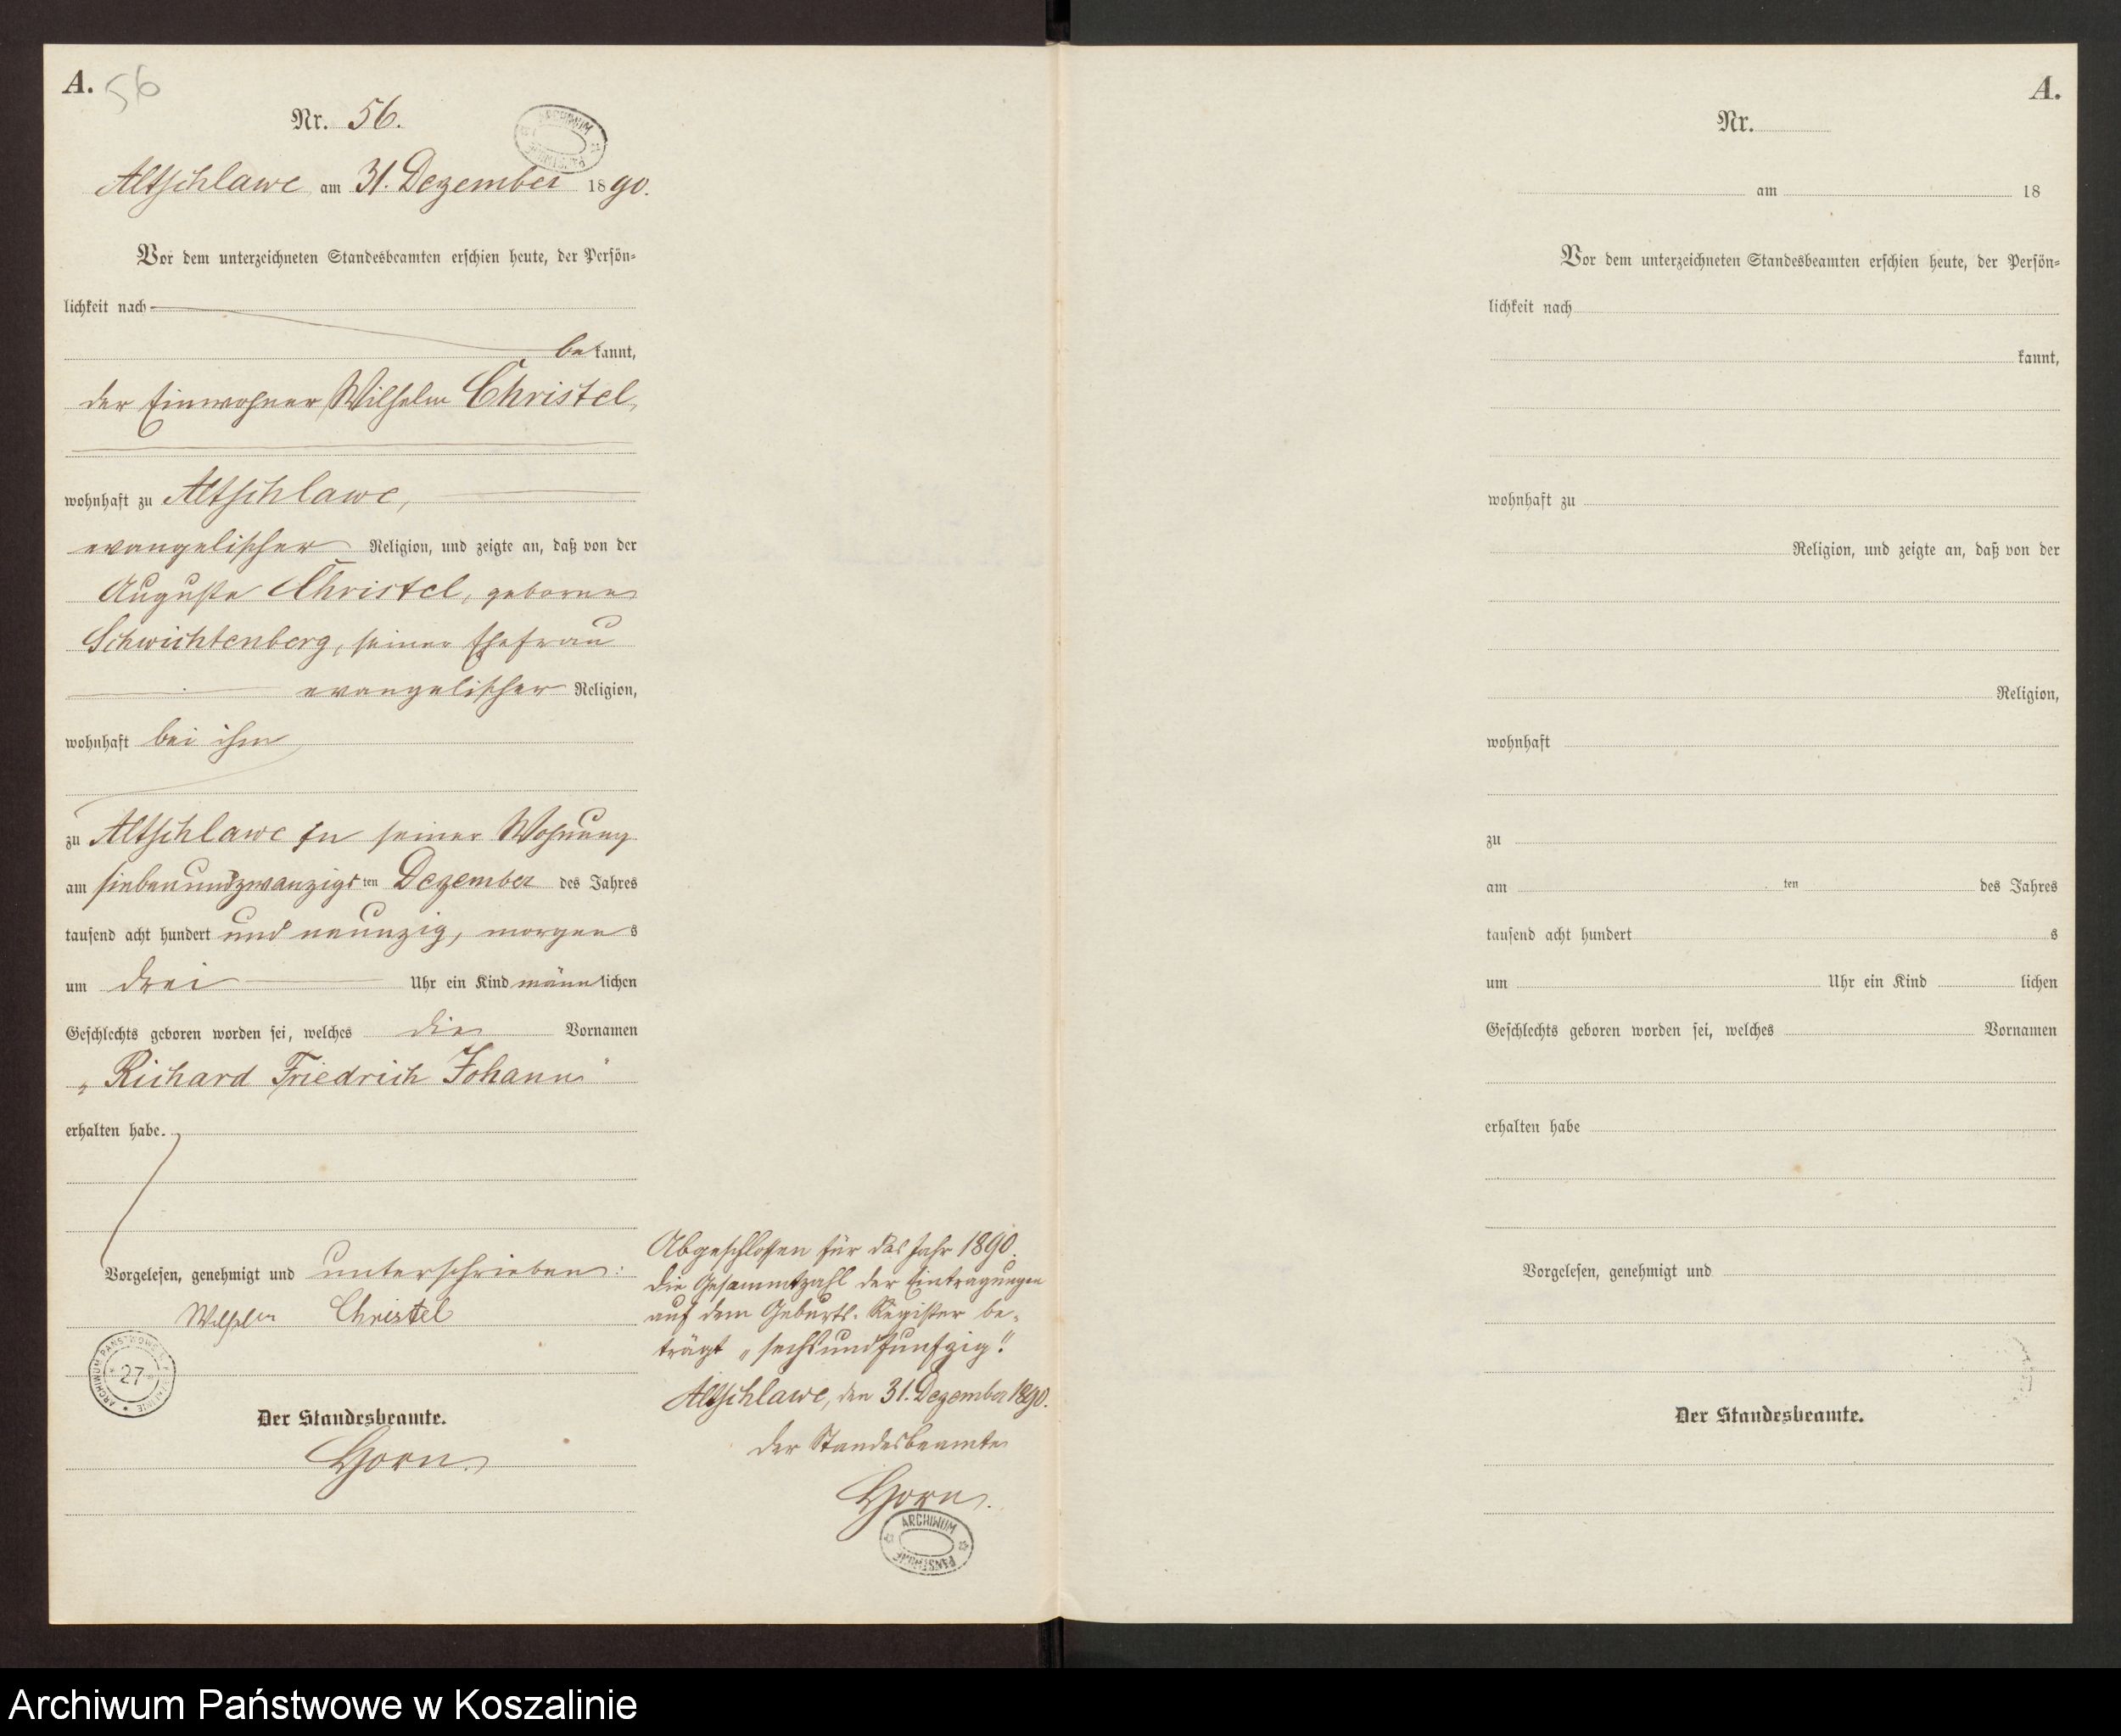 A. 56
Nr. 56.
ARCHIWUM PAŃSTWOWE
Altschlawe am 31. Dezember 1890.
Vor dem unterzeichneten Standesbeamten erschien heute, der Persön-
lichkeit nach
bekannt,
der Einwohner Wilhelm Christel,
wohnhaft zu Altschlawe,
evangelischer Religion, und zeigte an, daß von der
Auguste Christel, geborne
Schwichtenberg, seiner Ehefrau
evangelischer Religion,
wohnhaft bei ihm
zu Altschlawe in seiner Wohnung
am siebenundzwanzigsten Dezember des Jahres
tausend acht hundert und neunzig, morgens
um drei Uhr ein Kind männlichen
Geschlechts geboren worden sei, welches die Vornamen
„Richard Friedrich Johann"
erhalten habe.
Vorgelesen, genehmigt und unterschrieben:
Wilhelm Christel
27
Der Standesbeamte.
Horn.
Abgeschlossen für das Jahr 1890.
Die Gesammtzahl der Eintragungen
auf dem Geburts-Register be-
trägt „sechsundfunfzig".
Altschlawe, den 31. Dezember 1890.
Der Standesbeamte
Horn.
ARCHIWUM PAŃSTWOWE
A.
Nr.
am 18
Vor dem unterzeichneten Standesbeamten erschien heute, der Persön-
lichkeit nach
kannt,
wohnhaft zu
Religion, und zeigte an, daß von der
Religion,
wohnhaft
zu
am ten des Jahres
tausend acht hundert s
um Uhr ein Kind lichen
Geschlechts geboren worden sei, welches Vornamen
erhalten habe
Vorgelesen, genehmigt und
Der Standesbeamte.
Archiwum Państwowe w Koszalinie